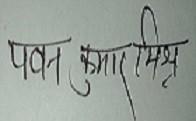 पवन कुमार मिश्र